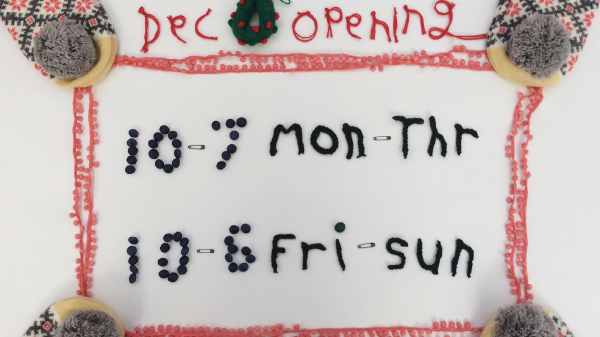 Dec opening
10-7 mon-Thr
10-6 Fri-sun